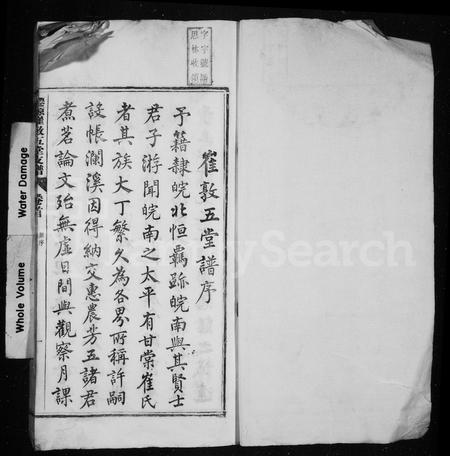 崔敦五堂譜序
予籍隸皖北恒羈跡皖南與其賢士
君子游聞皖南之太平有甘棠崔氏
者其族大丁繁久為各界所稱許嗣
設帳瀾溪因得納交惠農芳五諸君
煮茗論文殆無虛日間與觀察月課
字字號譜
恩林收領
卷首
Water Damage
Whole Volume